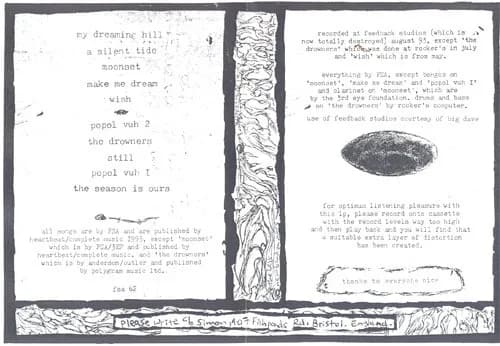 my dreaming hill
a silent tide
moonset
make me dream
wish
popol vuh 2
the drowners
still
popol vuh I
the season is ours
all songs are by FSA and are published by
heartbeat/complete music 1993, except 'moonset'
which is by FSA/3EF and published by
heartbeat/complete music, and 'the drowners'
which is by anderson/butler and published
by polygram music ltd.
fsa 62
recorded at feedback studios (which is
now totally destroyed) august 93, except 'the
drowners' which was done at rocker's in july
and 'wish' which is from may.
everything by FSA, except bongos on
'moonset', 'make me dream' and 'popol vuh I'
and clarinet on 'moonset', which are
by the 3rd eye foundation. drums and bass
on 'the drowners' by rocker's computer.
use of feedback studios courtesy of big dave
for optimum listening pleasure with
this lp, please record onto cassette
with the record levels way too high
and then play back and you will find that
a suitable extra layer of distortion
has been created.
thanks to everyone nice
please write c/o Simon, Fishponds Rd. Bristol. England.